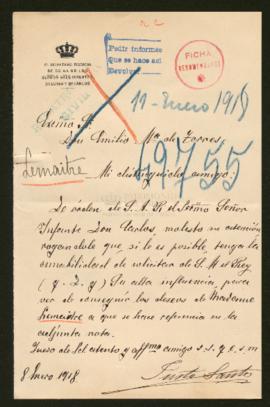 EL SECRETARIO
Pedir informes
que se hace así
Devolver
FICHA
11 Enero 1918
Excmo Sr.
Don Emilio Mª de Torres
49755
Lemaitre
Mi distinguido amigo:
De órden de S. A. R. el Sermo Señor
Infante Don Carlos, molesto su atención
rogandole que, si le es posible, tenga la
amabilidad de solicitar de S. M. el Rey
(q. D. g.) Su alta influencia, para
ver de conseguir los deseos de Madame
Lemaitre a que se hace referencia en la
adjunta nota.
Suyo de Vd atento y affmo amigo s. s. q. e. s. m
8 Enero 1918